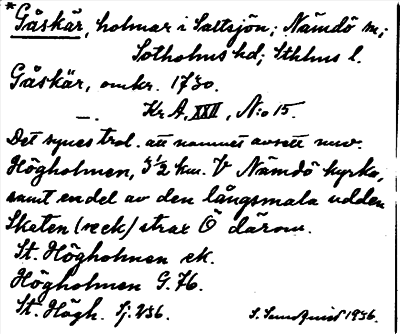 *Gåskär, holmar i Saltsjön; Nämdö sn;
Sotholms hd; Sthlms l.
Gåskär, omkr. 1730.
—. Kr A, XXII, N:o 15.
Det synes trol. att namnet avsett nuv.
Högholmen, 3 1/2 km. V Nämdö kyrka,
samt en del av den långsmala udden
Skaten (reck) strax Ö därom.
St. Högholmen ek.
Högholmen G. 76.
St. Högh. Sj. 236.
1936.